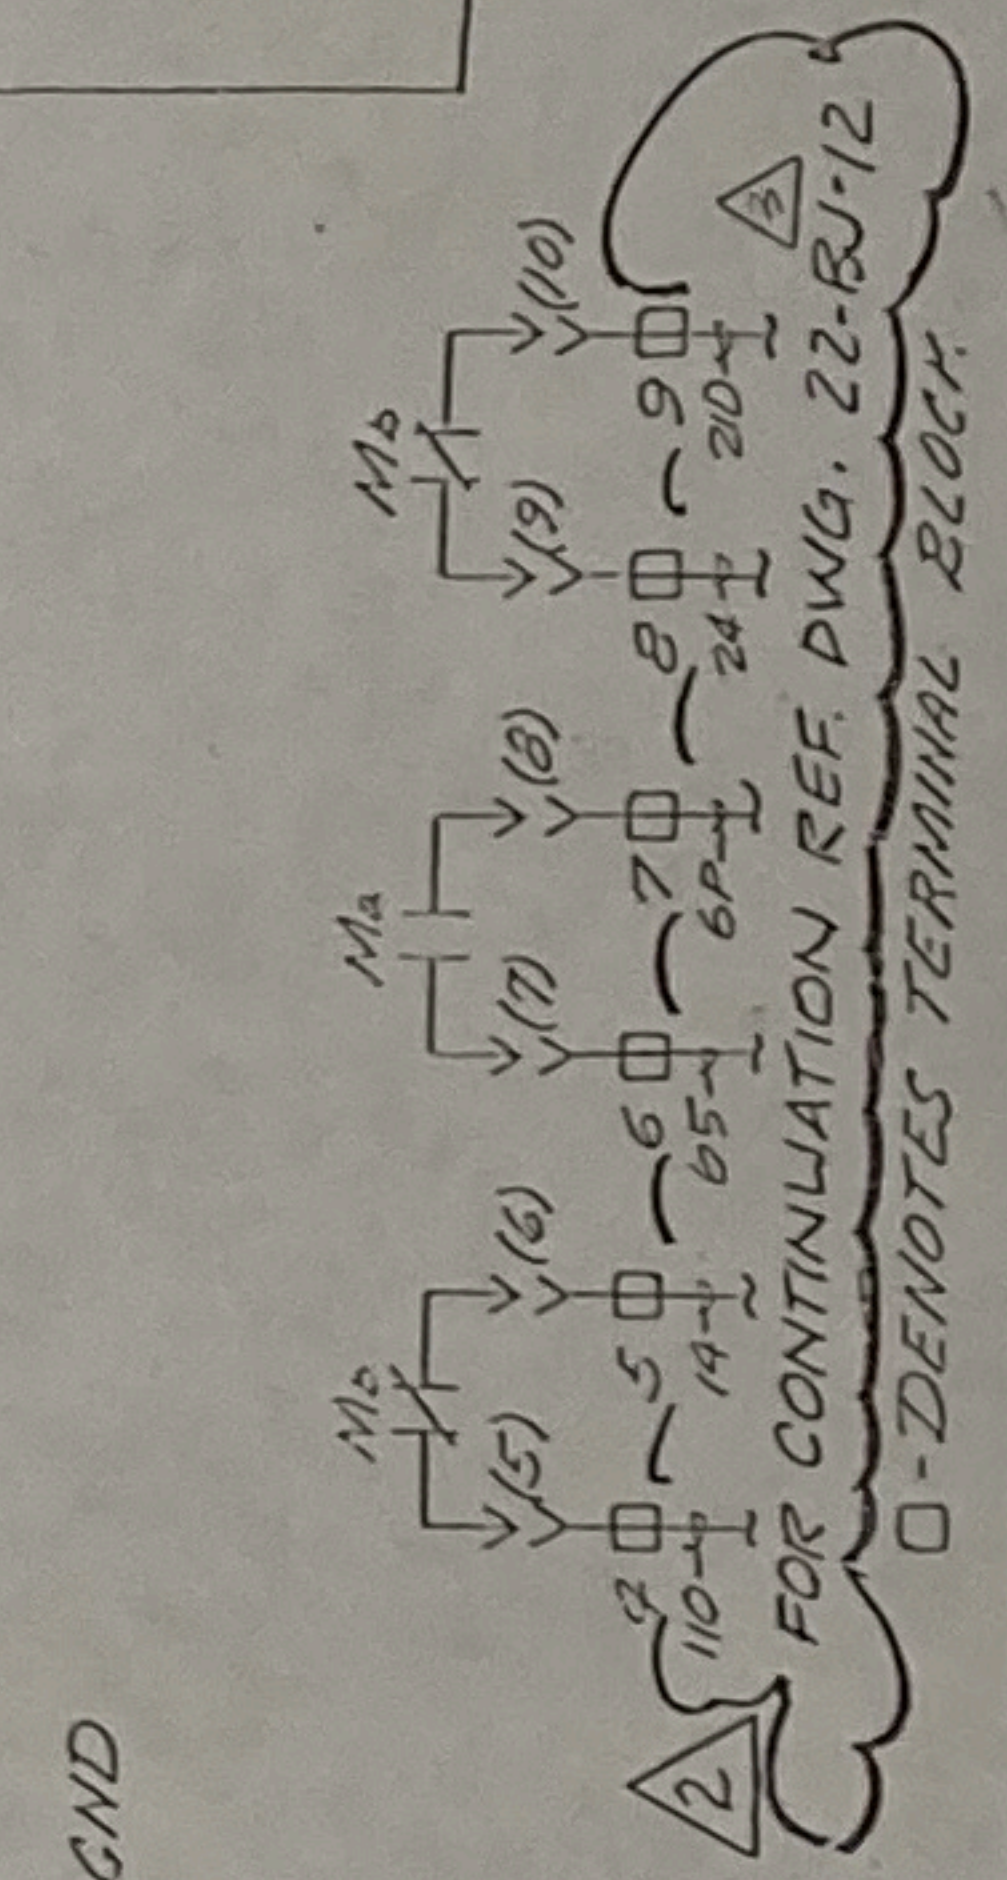 GND
Mb Ma Mb
(5) (6) (7) (8) (9) (10)
4 5 6 7 8 9
110 14 65 6P 24 21D
2
3
FOR CONTINUATION REF. DWG. 22-BJ-12
-DENOTES TERMINAL BLOCK.